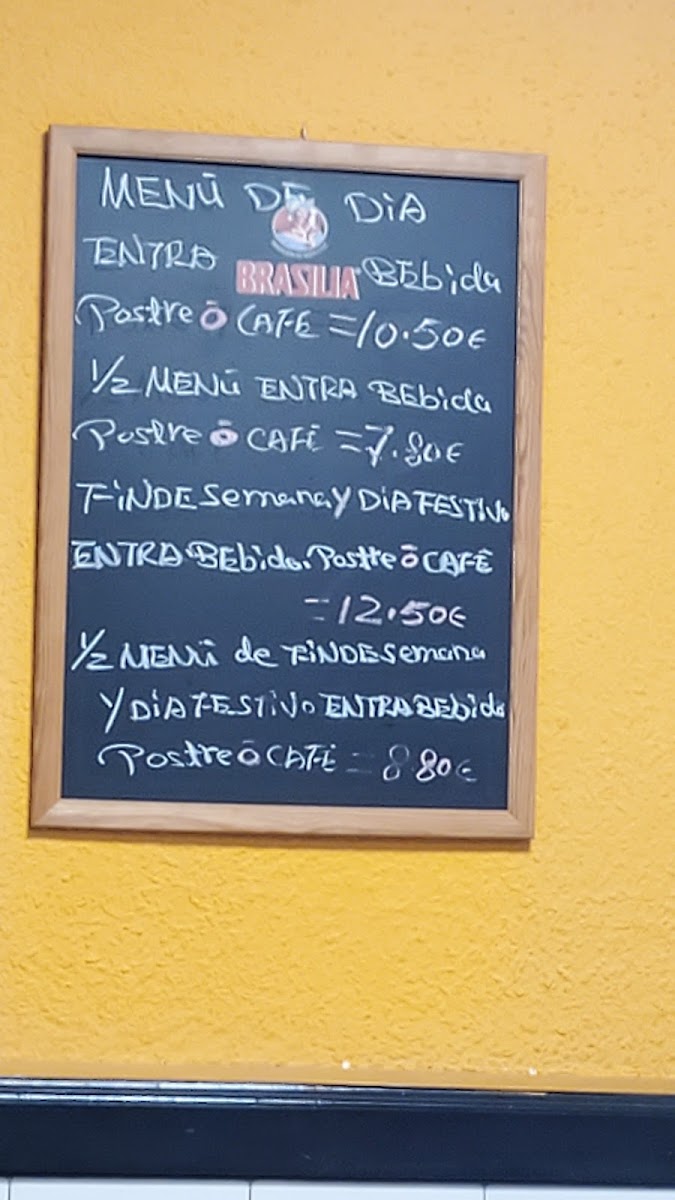 MENŪ DE DiA
ENTRA BRASILIA BEbida
Postre ō CAFE = 10.50€
1/2 MENŪ ENTRA BEbida
Postre ō CAFĒ = 7.80€
FiNDE Semana Y DiA FESTIVo
ENTRA BEbida. Postre ō CAFĒ
= 12.50€
1/2 MENŪ de FiNDE semana
Y DiA FESTIVo ENTRA BEbida
Postre ō CAFĒ = 8 80€